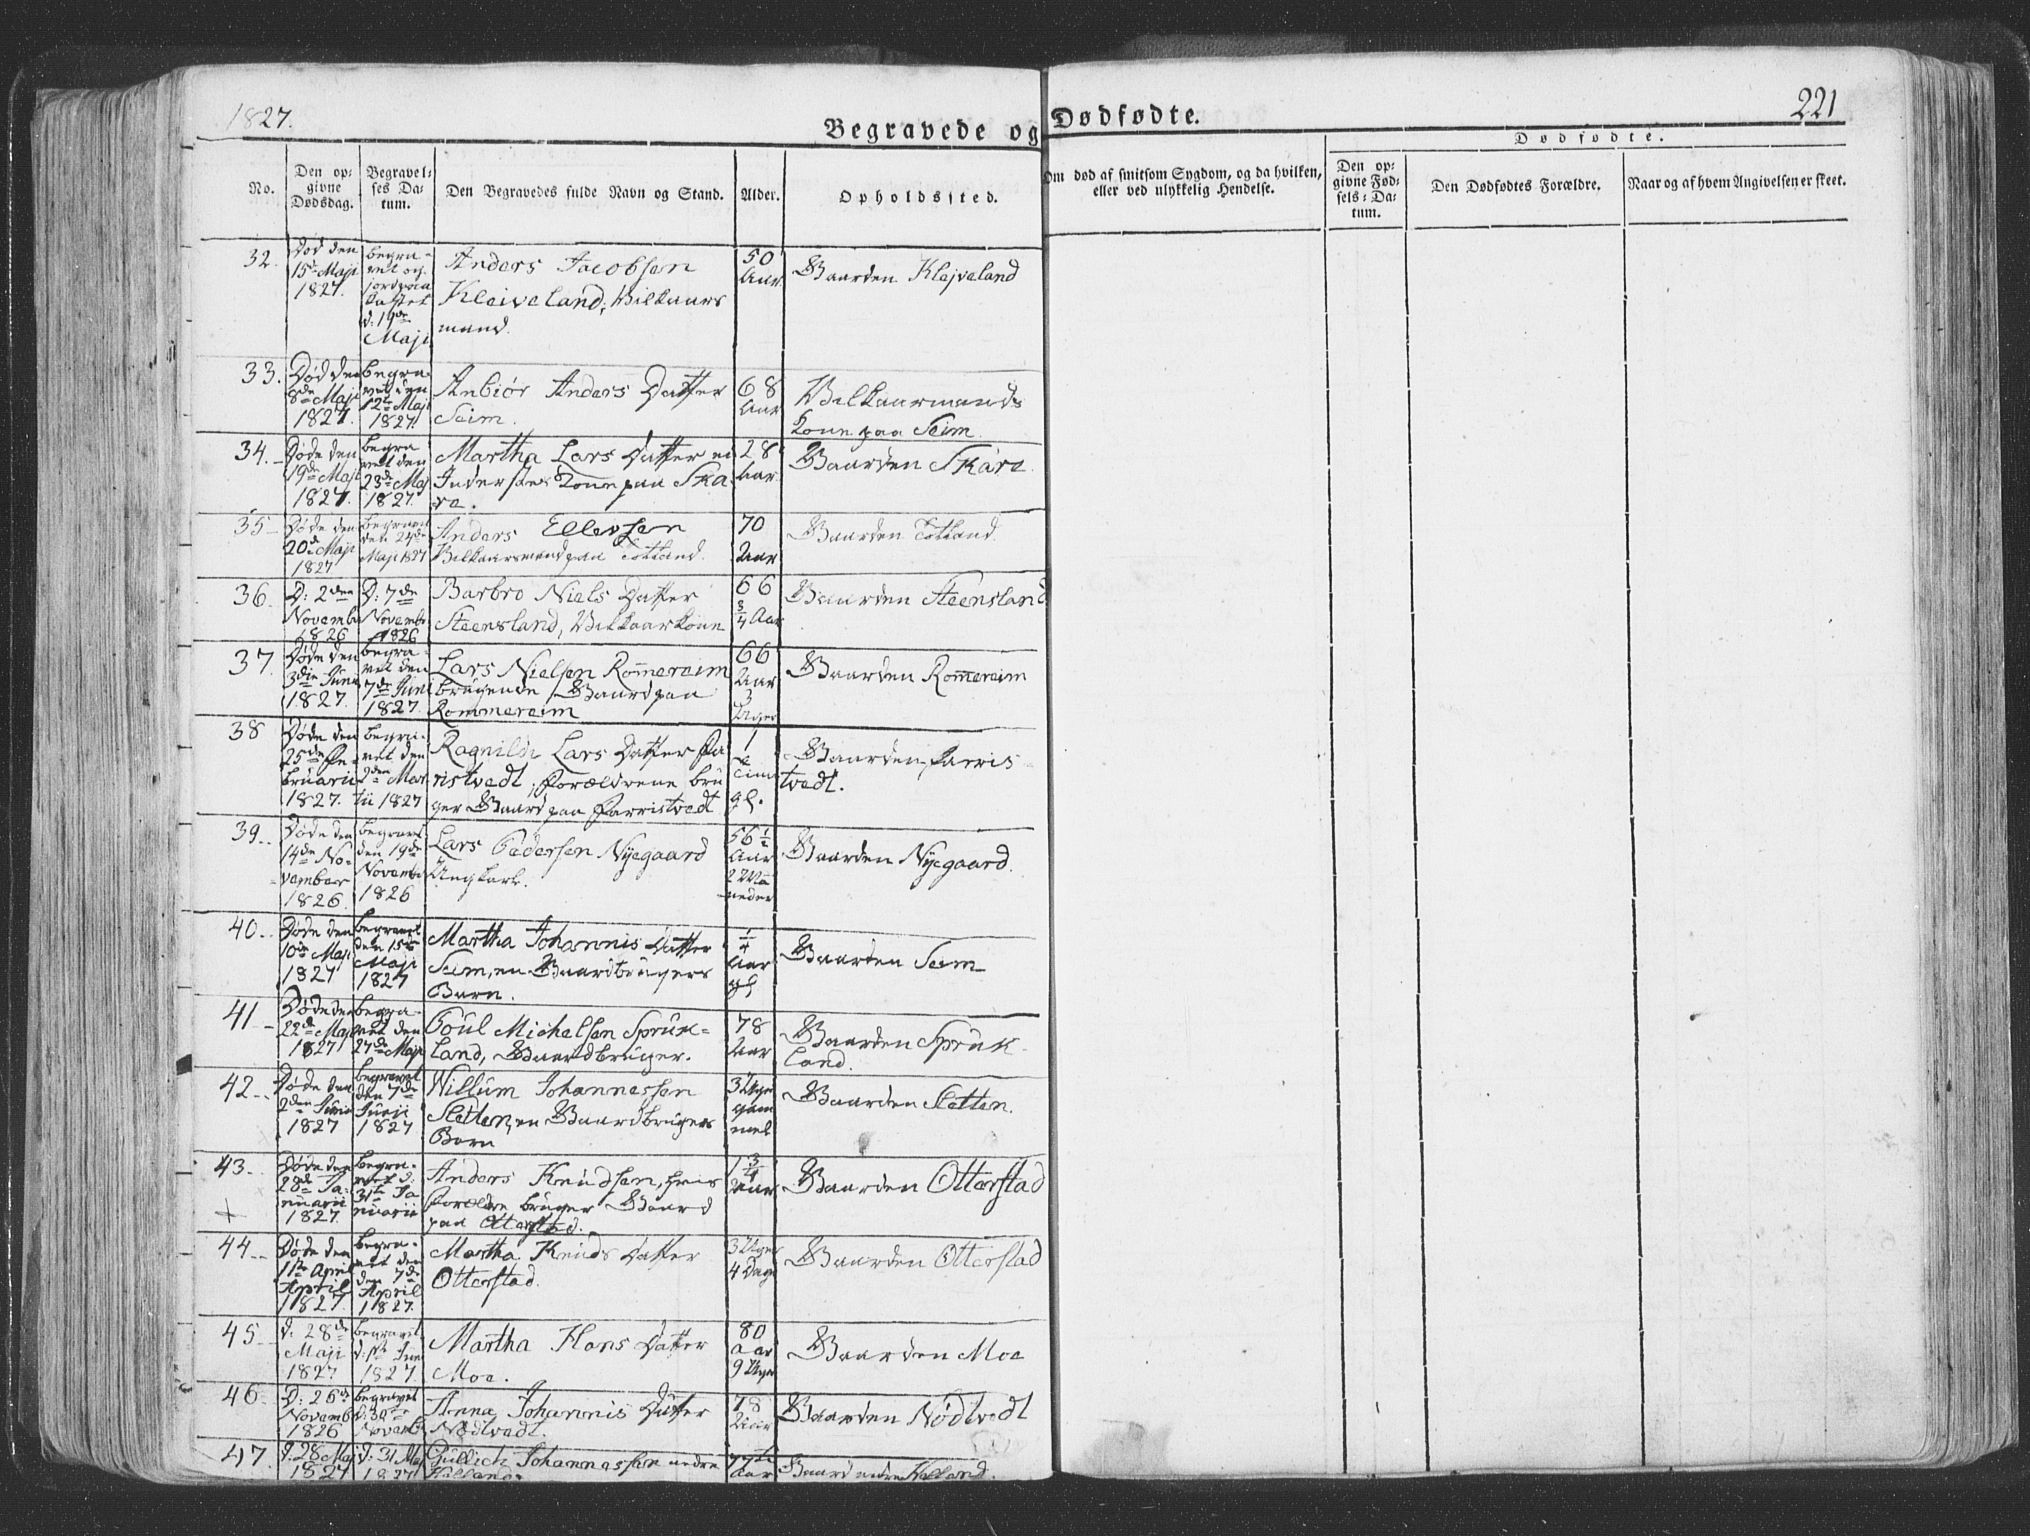 1827.
221
Begravede og Dødfødte.
Dødfødte.
No.
Den op=
givne
Dødsdag.
Begravel=
ses Da=
tum.
Den Begravedes fulde Navn og Stand.
Alder.
Opholdssted.
Om død af smitsom Sygdom, og da hvilken,
eller ved ulykkelig Hendelse.
Den op=
givne Fød=
sels=Da=
tum.
Den Dødfødtes Forældre.
Naar og af hvem Angivelsen er skeet.
32.
Død den
15de Maji
1827.
begra-
vet og
jordpaa
kastet
d: 19de
Maji
Anders Jacobsen
Kleiveland, Vilkaars
mand.
50
Aar
Gaarden Klejveland
33.
Død den
8de Maji
1827.
begra-
vet den
12te Maji
1827.
Anbiør Anders Datter
Seim.
68
Aar
Vilkaarmands
Kone paa Seim.
34.
Døde den
19de Maji
1827.
begra
vet den
23de Maj
1827.
Martha Lars Datter en
Inderstes Kone paa Ska
re.
28
Aar
Gaarden Skare
35
Døde den
20de Maji
1827
begravet
den 24de
Maji 1827
Anders Ellevsen
Vilkaarsmand paa Totland.
70
Aar
Gaarden Totland.
36.
D: 2den
Novembr
1826
D: 7de
Novembr
1826
Barbro Niels Datter
Steensland, Vilkaarkone
66
3/4 Aar
Gaarden Steensland
37.
Døde den
3die Juni
1827.
begra-
vet den
7de Juni
1827.
Lars Nielsen Romereim
brugende Gaard paa
Rommereim
66
Aar
3
Uger
Gaarden Romereim
38
Døde den
25de Fe-
bruarii
1827.
begra-
vet den
2den Mar
tii 1827
Ragnilde Lars Datter Fa
ristvedt, Forældrene bru
ger Gaard paa Farristvedt
1
Time
gl.
Gaarden Farris-
tvedt.
39.
Døde den
14de No-
vember
1826.
begravet
den 19de
Novembr
1826
Lars Pedersen Nyegaard
Ungkarl.
56 1/2
Aar
2 Maa
neder
Gaarden Nyegaard.
40.
Døde den
10de Maji
1827
begravet
den 15de
Maji
1827
Martha Johannis Datter
Seim, en Gaardbrugers
Barn.
1/4
Aar
gl
Gaarden Seim
41
Døde den
22de Maji
1827
begra-
vet den
27de Maji
Poul Michelsen Spruk-
land, Gaardbruger.
78
Aar
Gaarden Spruk-
land.
42.
Døde den
2den Juni
1827
begravet
den 7de
Junii
1827
Willum Johannessen
Sletten, en Gaardbrugers
Barn
3 Uger
gam
mel
Gaarden Sletten.
43.
Døde den
28de Ja-
nuarii
1827.
begra-
vet d:
31te Ja
nuarii
Anders Knudsen, hvis
Forældre bruger Gaard
paa Otterstad.
1 3/4
Aar
Gaarden Otterstad
44.
Døde den
1ste April
April
1827.
begra-
vet den
den 7de
April
1827.
Martha Knuds Datter
Otterstad.
3 Uger
4 Dage
Gaarden Otterstad
45
d: 28de
Maji
1827
begravet
d: 1ste Juni
1827
Martha Hans Datter
Moe.
80
Aar
9 Uger
Gaarden Moe
46.
D: 26de
Novembr
1826
begravet
d: 30te
Novemb
Anna Johannis Datter
Nødtvedt.
78
Aar
Gaarden Nødtvedt
47.
d: 28 Maji
1827
d: 31 Maj
1827
Gullich Johannessen nedre
Helland.
Aar
Gaard nedre Helland.